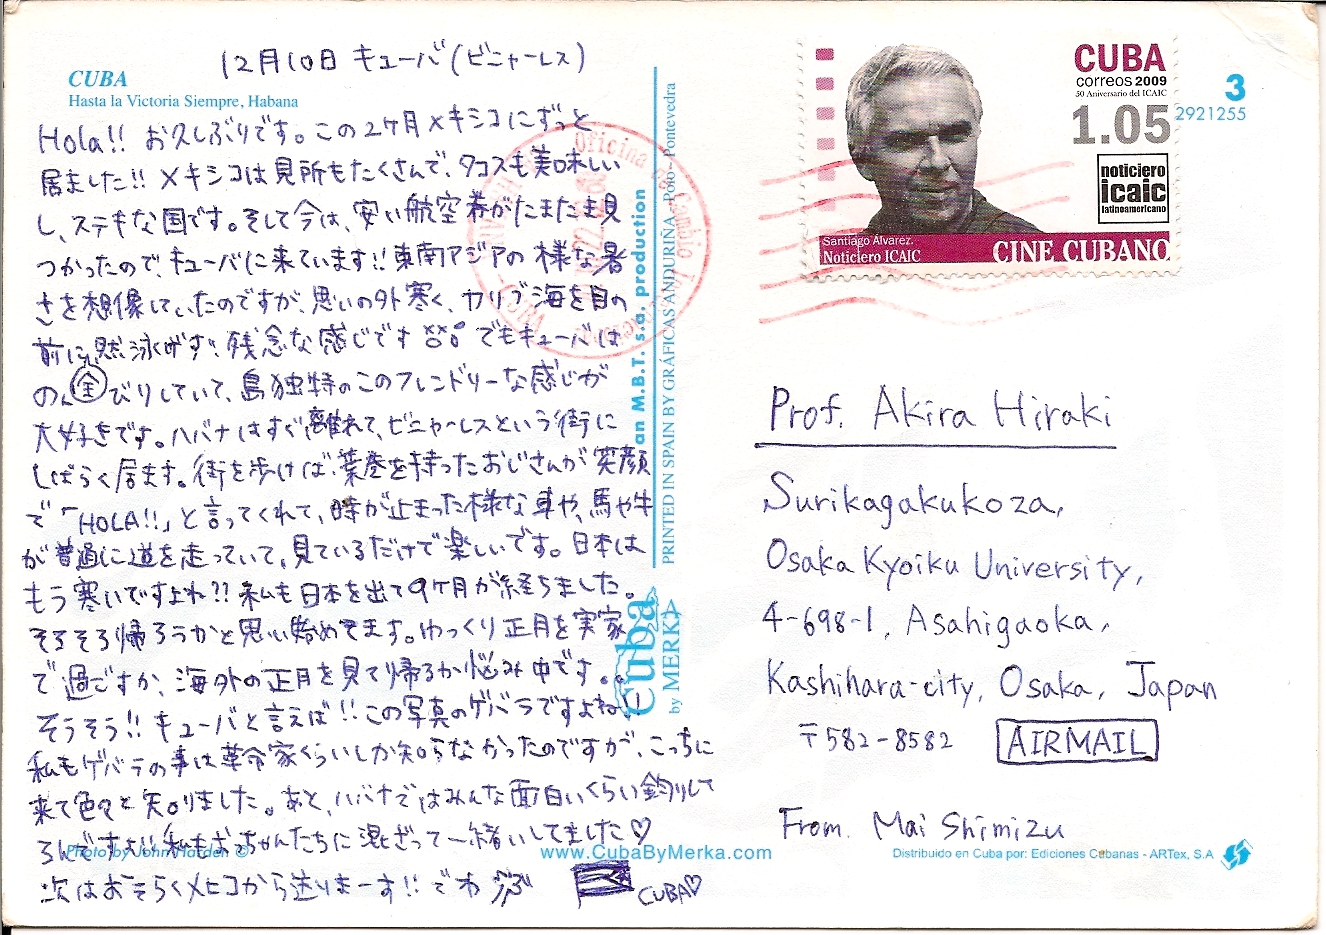 12月10日 キューバ(ビニャーレス)
CUBA
Hasta la Victoria Siempre, Habana
Hola!! お久しぶりです。この2ヶ月メキシコにずっと
居ました!! メキシコは見所もたくさんで、タコスも美味しい
し、ステキな国です。そして今は、安い航空券がたまたま見
つかったので、キューバに来ています!! 東南アジアの様な暑
さを想像していたのですが、思いの外寒く、カリブ海を目の
前に 泳げず、残念な感じです でもキューバは
のんびりしていて、島独特のこのフレンドリーな感じが
大好きです。ハバナはすぐ離れて、ビニャーレスという街に
しばらく居ます。街を歩けば、葉巻を持ったおじさんが笑顔
で「HOLA!!」と言ってくれて、時が止まった様な車や、馬や牛
が普通に道を走っていて、見ているだけで楽しいです。日本は
もう寒いですよね?? 私も日本を出て9ヶ月が経ちました。
そろそろ帰ろうかと思い始めてます。ゆっくり正月を実家
で過ごすか、海外の正月を見て帰るか悩み中です。。
そうそう!! キューバと言えば!! この写真のゲバラですよね!!
私もゲバラの事は革命家くらいしか知らなかったのですが、こっちに
来て色々と知りました。あと、ハバナではみんな面白いくらい釣りして
るんですよ!! 私もおっちゃんたちに混ざって一緒にしてました♡
次はおそらくメヒコから送りまーす!! でわ
CUBA♡
Photo by John Harden ©
www.CubaByMerka.com
an M.B.T. s.a. production
PRINTED IN SPAIN BY GRÁFICAS ANDURIÑA - Poio - Pontevedra
Cuba
by MERKA
CUBA
correos 2009
50 Aniversario del ICAIC
1.05
noticiero
icaic
latinoamericano
Santiago Álvarez.
Noticiero ICAIC
CINE CUBANO
3
2921255
Prof. Akira Hiraki
Surikagakukoza,
Osaka Kyoiku University,
4-698-1, Asahigaoka,
Kashihara-city, Osaka, Japan
〒582-8582 AIRMAIL
From. Mai Shimizu
Distribuido en Cuba por: Ediciones Cubanas - ARTex, S.A